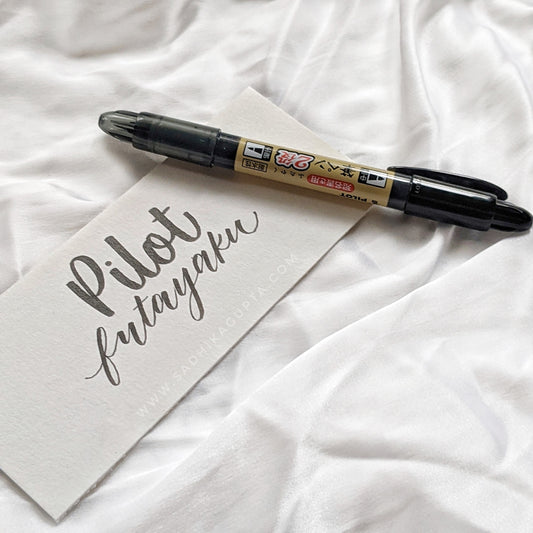 Pilot
futayaku
WWW.SADHIKAGUPTA.COM
筆ペン
2役
PILOT